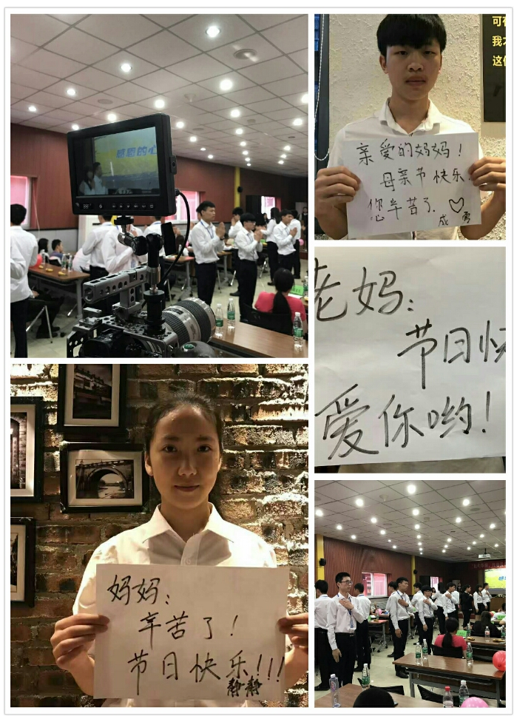 感恩的心
可
我
这
亲爱的妈妈！
母亲节快乐
您辛苦了
老妈：
节日快
爱你哟！
妈妈：
辛苦了！
节日快乐!!!
静静